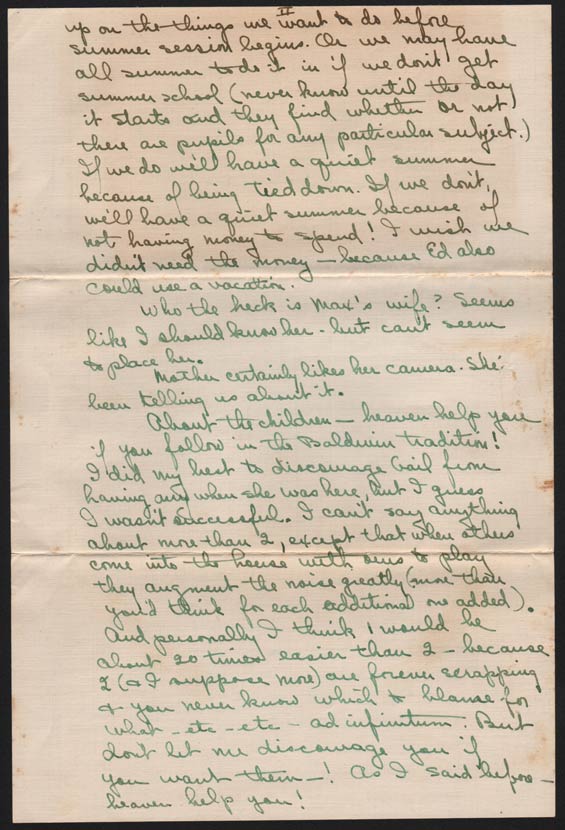 II
up on the things we want to do before
summer session begins. Or we may have
all summer to do it in if we don't get
summer school (never know until the day
it starts and they find whether or not
there are pupils for any particular subject.)
If we do we'll have a quiet summer
because of being tied down. If we don't,
we'll have a quiet summer because of
not having money to spend! I wish we
didn't need the money – because Ed also
could use a vacation.
Who the heck is Max's wife? Seems
like I should know her - but can't seem
to place her.
Mother certainly likes her camera. She's
been telling us about it.
About the children – heaven help you
if you follow in the Baldwin tradition!
I did my best to discourage Gail from
having any when she was here, but I guess
I wasn't successful. I can't say anything
about more than 2, except that when others
come into the house with ours to play
they augment the noise greatly (more than
you'd think for each additional one added).
And personally I think 1 would be
about 20 times easier than 2 – because
2 (& I suppose more) are forever scrapping
& you never know which to blame for
what – etc – etc – ad infinitum. But
don't let me discourage you if
you want them –! As I said before –
heaven help you!